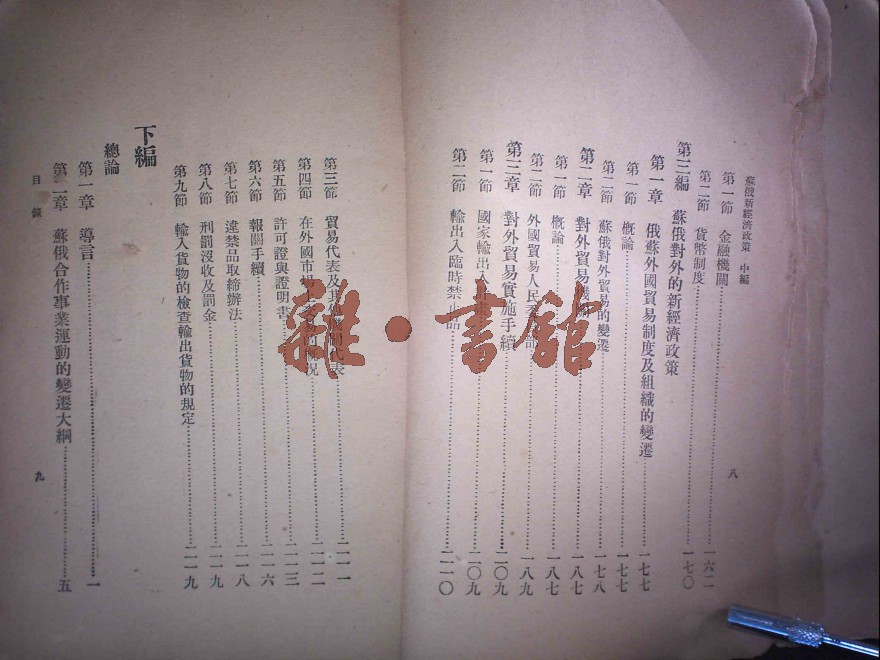 蘇俄新經濟政策 中編
八
第一節 金融機關 一六二
第二節 貨幣制度 一七〇
第三編 蘇俄對外的新經濟政策
第一章 俄蘇外國貿易制度及組織的變遷 一七七
第一節 概論 一七七
第二節 蘇俄對外貿易的變遷 一七八
第二章 對外貿易機關 一八七
第一節 概論 一八七
第二節 外國貿易人民委 一八九
第三章 對外貿易實施手續 二〇九
第一節 國家輸出入計畫 二〇九
第二節 輸出入臨時禁止品 二一〇
第三節 貿易代表及其他機關代表 二一一
第四節 在外國市場 況 二一二
第五節 許可證與證明書 二一三
第六節 報關手續 二一六
第七節 違禁品取締辦法 二一八
第八節 刑罰沒收及罰金 二一九
第九節 輸入貨物的檢查輸出貨物的規定 二一九
下編
總論
第一章 導言 一
第二章 蘇俄合作事業運動的變遷大綱 五
目錄
九
雜·書館